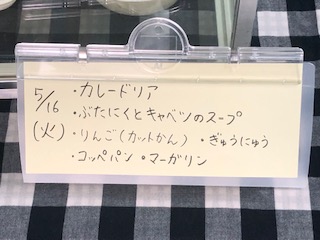 5/16 ・カレードリア
・ぶたにくとキャベツのスープ
(火) ・りんご(カットかん) ・ぎゅうにゅう
・コッペパン ・マーガリン